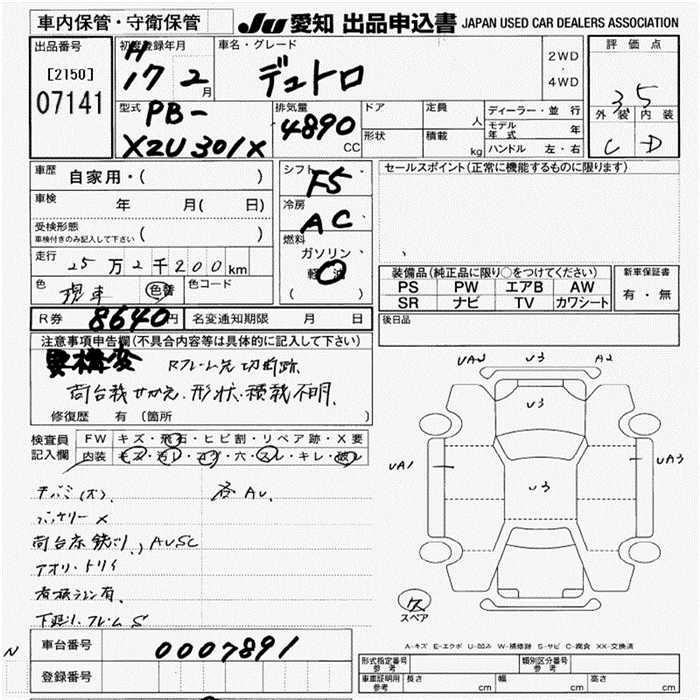 車内保管・守衛保管
JU 愛知 出品申込書 JAPAN USED CAR DEALERS ASSOCIATION
出品番号
[2150]
07141
初度登録年月
H
17 2月
車名・グレード
デュトロ
2WD
・
4WD
評価点
3.5
外装 内装
C D
型式
PB-
XZU301X
排気量
4890
CC
ドア
定員 人
形状
積載 kg
ディーラー・並行
モデル年式 年
ハンドル 左・右
車歴 自家用・( )
車検 年 月( 日)
受検形態
車検付きのみ記入して下さい ( )
走行 25万2千200km
色 現車 色替
色コード
シフト
F5
冷房
AC
燃料
ガソリン
軽油
( )
セールスポイント(正常に機能するものに限ります)
装備品(純正品に限り○をつけてください)
PS PW エアB AW
SR ナビ TV カワシート
新車保証書
有・無
R券 8640円
名変通知期限 月 日
後日品
注意事項申告欄(不具合内容等は具体的に記入して下さい)
要構変 Rフレーム先切断跡
荷台載せかえ、形状・積載不明、
修復歴 有 (箇所
検査員
記入欄
FW キズ・飛石・ヒビ割・リペア跡・X要
内装 キズ・汚レ・コゲ・穴・スレ・キレ・破レ
各AU、
バッテリーX
荷台床錆び、AUSC
アオリ・トリイ
下廻り、フレームS
UA2 U3 A2
U3
UA1 U3 UA3
スペア
A-キズ E-エクボ U-凹み W-補修跡 S-サビ C-腐食 XX-交換済
N
車台番号
0007891
登録番号
形式指定番号
参考
類別区分番号
参考
車庫証明用
参考
長さ cm
幅 cm
高さ cm